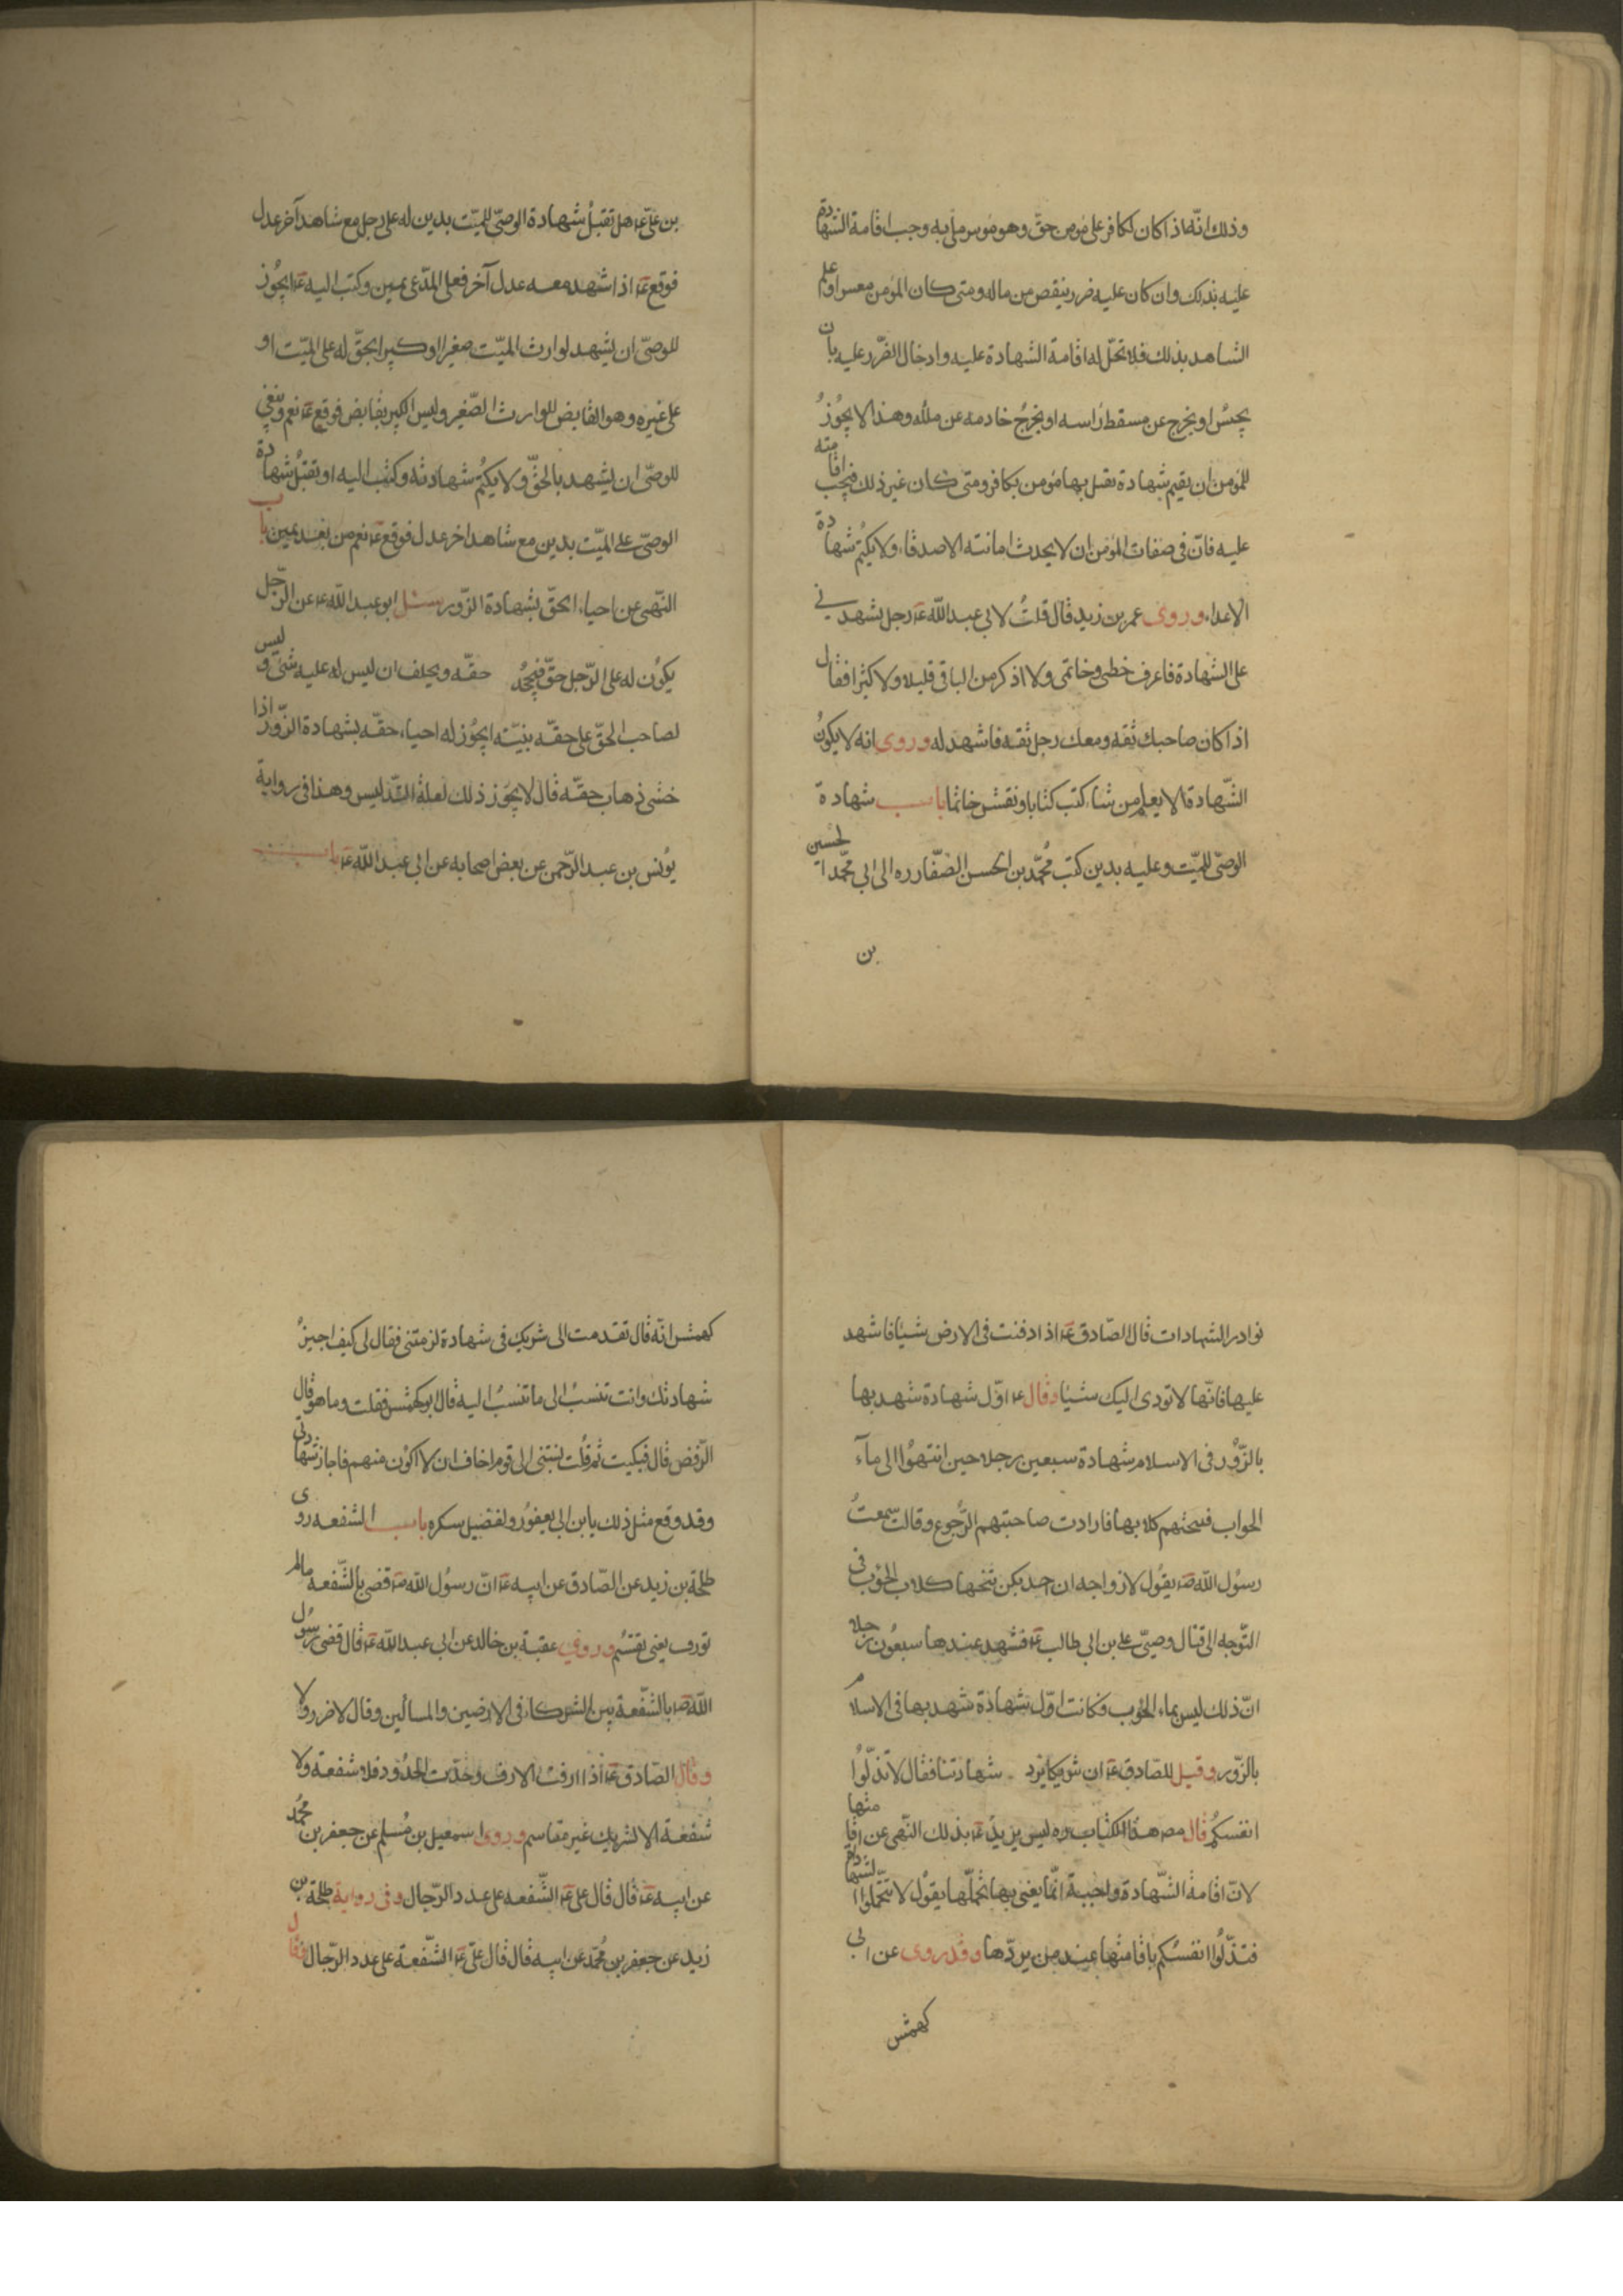 وذلك انّه اذا كان لكافر على مؤمن حقّ وهو موسر ملئ به وجب اقامة الشهادة
عليه بذلك وان كان عليه ضرر بنقص من ماله ومتى كان المؤمن معسرا وعلم
الشاهد بذلك فلا تحلّ له اقامة الشهادة عليه وادخال الضّرر عليه بان
يحبس او يخرج عن مسقط رأسه او يخرج خادمه عن ملكه وهذا لا يجوز
للمؤمن ان يقيم شهادة يقتل بها مؤمن بكافر ومتى كان غير ذلك فيجب اقامته
عليه فانّ فى صفات المؤمن ان لا يحدث امانته الاصدقاء ولا يكتم شهادة
الاعداء وروى عمر بن زيد قال قلت لابى عبد اللّه ع رجل يشهدنى
على الشهادة فاعرف خطى وخاتمى ولا اذكر من الباقى قليلا ولا كثيرا فقال
اذا كان صاحبك ثقه ومعك رجل ثقه فاشهد له وروى انه لا يكون
الشّهادة الا بعلم من شاء كتب كتابا ونقش خاتما باب شهادة
الوصىّ للميّت وعليه بدين كتب محمّد بن الحسن الصّفّار ره الى ابى محمّد الحسين
بن
بن علىّ ع هل تقبل شهادة الوصىّ للميّت بدين له على رجل مع شاهد آخر عدل
فوقع ع اذا شهد معه عدل آخر فعلى المدّعى يمين وكتب اليه ع ايجوز
للوصىّ ان يشهد لوارث الميّت صغيرا او كبيرا بحقّ له على الميّت او
على غيره وهو القابض للوارث الصّغير وليس الكبير بقابض فوقع ع نعم وينبغى
للوصىّ ان يشهد بالحقّ ولا يكتم شهادته وكتب اليه او تقبل شهادة
الوصىّ على الميّت بدين مع شاهد اخر عدل فوقع ع نعم من بعد يمين باب
النّهى عن احياء الحقّ بشهادة الزّور سئل ابو عبد اللّه ع عن الرّجل
يكون له على الرّجل حقّ فيجحد حقّه ويحلف ان ليس له عليه شئ وليس
لصاحب الحقّ على حقّه بيّنه ايجوز له احياء حقّه بشهادة الزّور اذا
خشى ذهاب حقّه قال لا يجوز ذلك لعلة التّدليس وهذا فى رواية
يونس بن عبد الرّحمن عن بعض اصحابه عن ابى عبد اللّه ع باب
نوادر الشهادات قال الصّادق ع اذا دفنت فى الارض شيئا فاشهد
عليها فانّها لا تودى اليك شيئا وقال ع اوّل شهادة شهد بها
بالزّور فى الاسلام شهادة سبعين رجلا حين انتهوا الى مآء
الحواب فنبحتهم كلابها فارادت صاحبتهم الرّجوع وقالت سمعت
رسول اللّه ص يقول لازواجه ان احديكن تنبحها كلاب الحوب فى
التّوجه الى قتال وصيّى على بن ابى طالب ع فشهد عندها سبعون رجلا
انّ ذلك ليس بماء الحوب فكانت اوّل شهادة شهد بها فى الاسلام
بالزّور وقيل للصّادق ع ان شريكا يرد شهادتنا فقال لا تذلّوا
انفسكم قال مص هذا الكتاب ره ليس يريد ع بذلك النّهى عن اقامتها
لانّ اقامة الشّهادة واجبة انّما يعنى بها تحمّلها يقول لا تتحمّلوا الشهادة
فتذلّوا انفسكم باقامتها عند من يردّها وقد روى عن ابى
كهمش
كهمش انّه قال تقدمت الى شريك فى شهادة لزمتنى فقال لى كيف اجيز
شهادتك وانت تنسب الى ما تنسب اليه قال ابو كهمش فقلت وما هو قال
الرّفض قال فبكيت ثم قلت نسبتنى الى قوم اخاف ان لا اكون منهم فاجاز شهادتى
وقد وقع مثل ذلك يا بن ابى يعفور ولفضيل سكره باب الشفعه روى
طلحة بن زيد عن الصّادق عن ابيه ع انّ رسول اللّه ص قضى بالشّفعه مالم
تورف يعنى تقتسم وروى عقبة بن خالد عن ابى عبد اللّه ع قال قضى رسول
اللّه ص بالشّفعة بين الشركاء فى الارضين والمساكين وقال لا ضرر ولا
وقال الصّادق ع اذا ارفت الارف وحدّت الحدود فلا شفعة ولا
شفعة الا لشريك غير مقاسم وروى اسمعيل بن مسلم عن جعفر بن محمد
عن ابيه ع قال قال على ع الشّفعه على عدد الرّجال وفى رواية طلحة بن
زيد عن جعفر بن محمّد عن ابيه قال قال علىّ ع الشّفعة على عدد الرّجال فقال